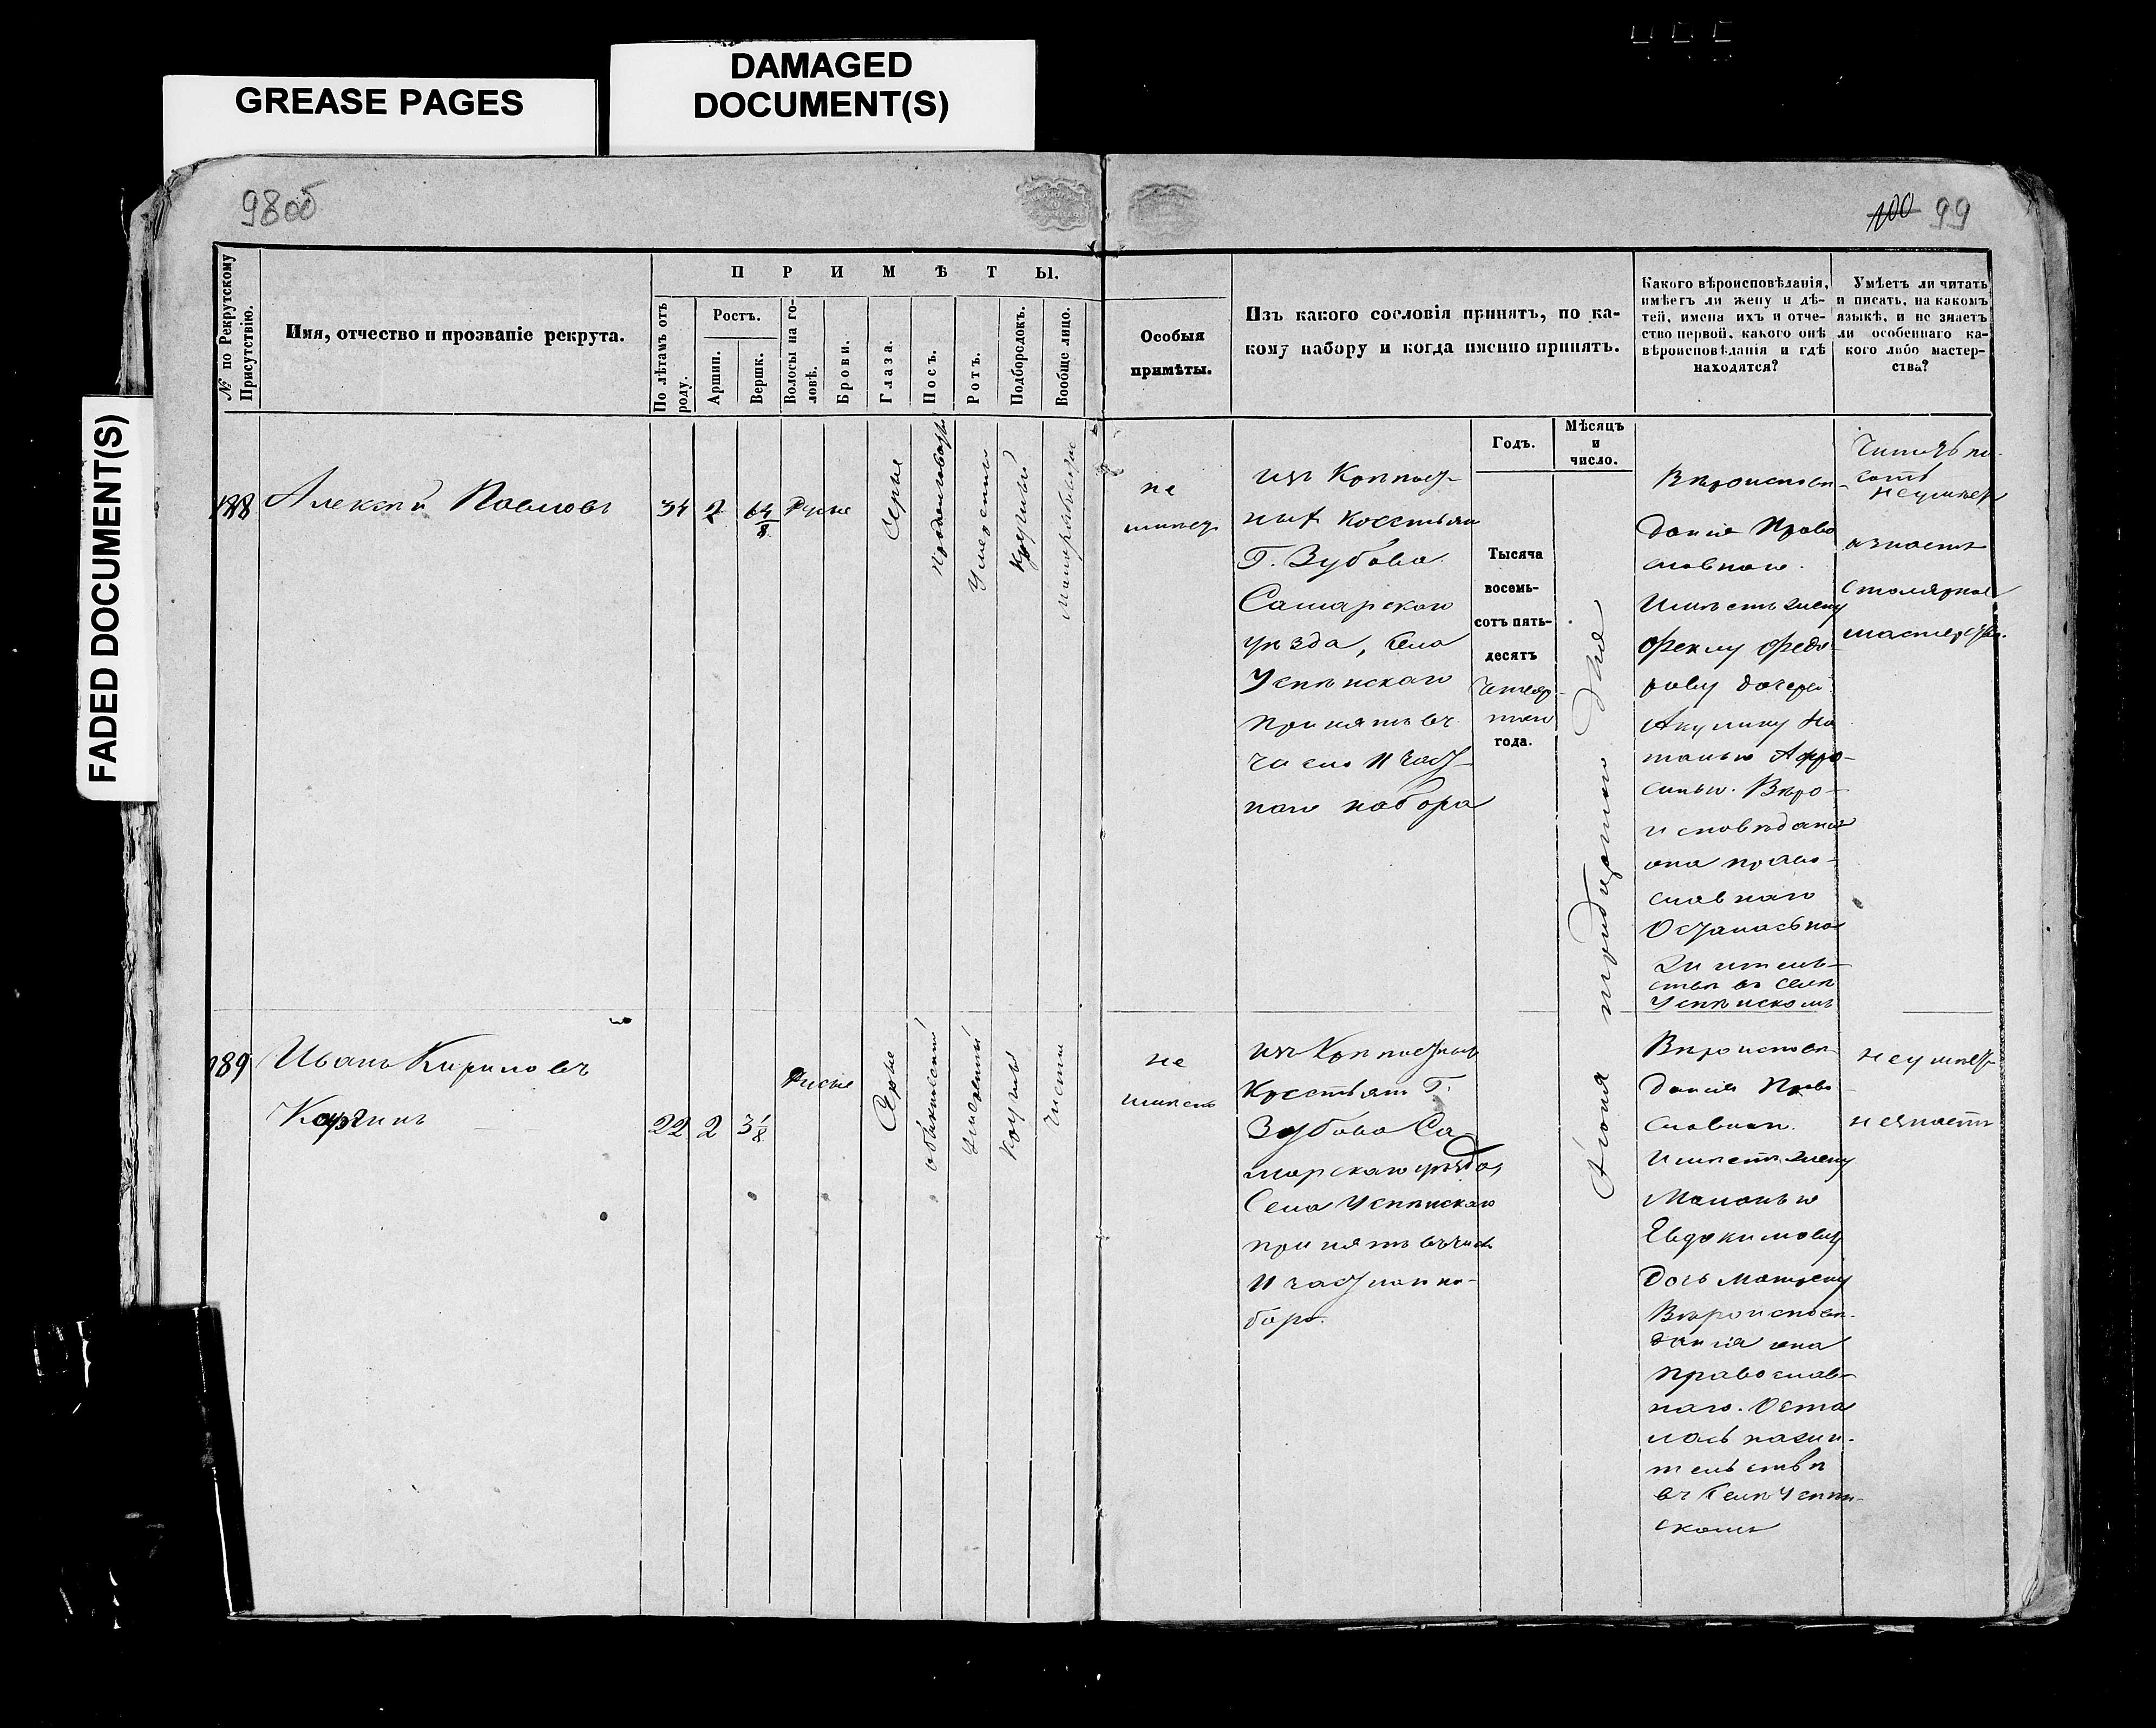 GREASE PAGES
DAMAGED
DOCUMENT(S)
FADED DOCUMENT(S)
98об
100 99
№ по Рекрутскому
Присутствію.
Имя, отчество и прозваніе рекрута.
ПРИМѢТЫ.
По лѣтамъ отъ
роду.
Ростъ.
Аршин.
Вершк.
Волосы на го-
ловѣ.
Брови.
Глаза.
Носъ.
Ротъ.
Подбородокъ.
Вообще лицо.
Особыя
примѣты.
Изъ какого сословія принятъ, по ка-
кому набору и когда именно принятъ.
Какого вѣроисповѣданія,
имѣетъ ли жену и дѣ-
тей, имена ихъ и отче-
ство первой, какого онѣ
вѣроисповѣданія и гдѣ
находятся?
Умѣетъ ли читать
и писать, на какомъ
языкѣ, и не знаетъ
ли особеннаго ка-
кого либо мастер-
ства?
Годъ.
Мѣсяцъ
и
число.
188
Алексѣй Павловъ
34
2
6 4/8
Русые
Серые
Продолговатый
Умеренный
Круглый
не
имѣетъ
изъ
ныхъ Крестьянъ
Г. Зубова
Самарскаго
уѣзда, села
Успѣнскаго
принятъ въ
число 11 част-
наго набора
Тысяча
восемь-
сотъ пять-
десятъ
четвер-
таго
года.
Вѣроисповѣ-
данія Право
славнаго.
Имѣетъ жену
Феклу Федо-
рову дочерей
Акулину На
талью Афро-
синью. Вѣро-
исповѣданія
она право-
славнаго
Осталась на
жительствѣ
въ селѣ
Успѣнскомъ
Читать пи-
сать
неумѣетъ
а знаетъ
столярное
мастерство.
189
Иванъ Кириловъ
22
2
3 1/8
Русые
Серые
обыкновенный
Умеренный
Круглый
Чистое
не
имѣетъ
изъ
Крестьянъ Г.
Зубова Са-
марскаго уѣзда,
Села Успѣнскаго
принятъ въ число
11 частнаго на-
бора.
Вѣроисповѣ-
данія Право
славнаго.
Имѣетъ жену
Маланью
Евдокимову
дочь Матрену
Вѣроисповѣ-
данія она
православ-
наго. Оста
лась на жи-
тельствѣ
въ Селѣ Успѣн-
скомъ
неумѣетъ
незнаетъ